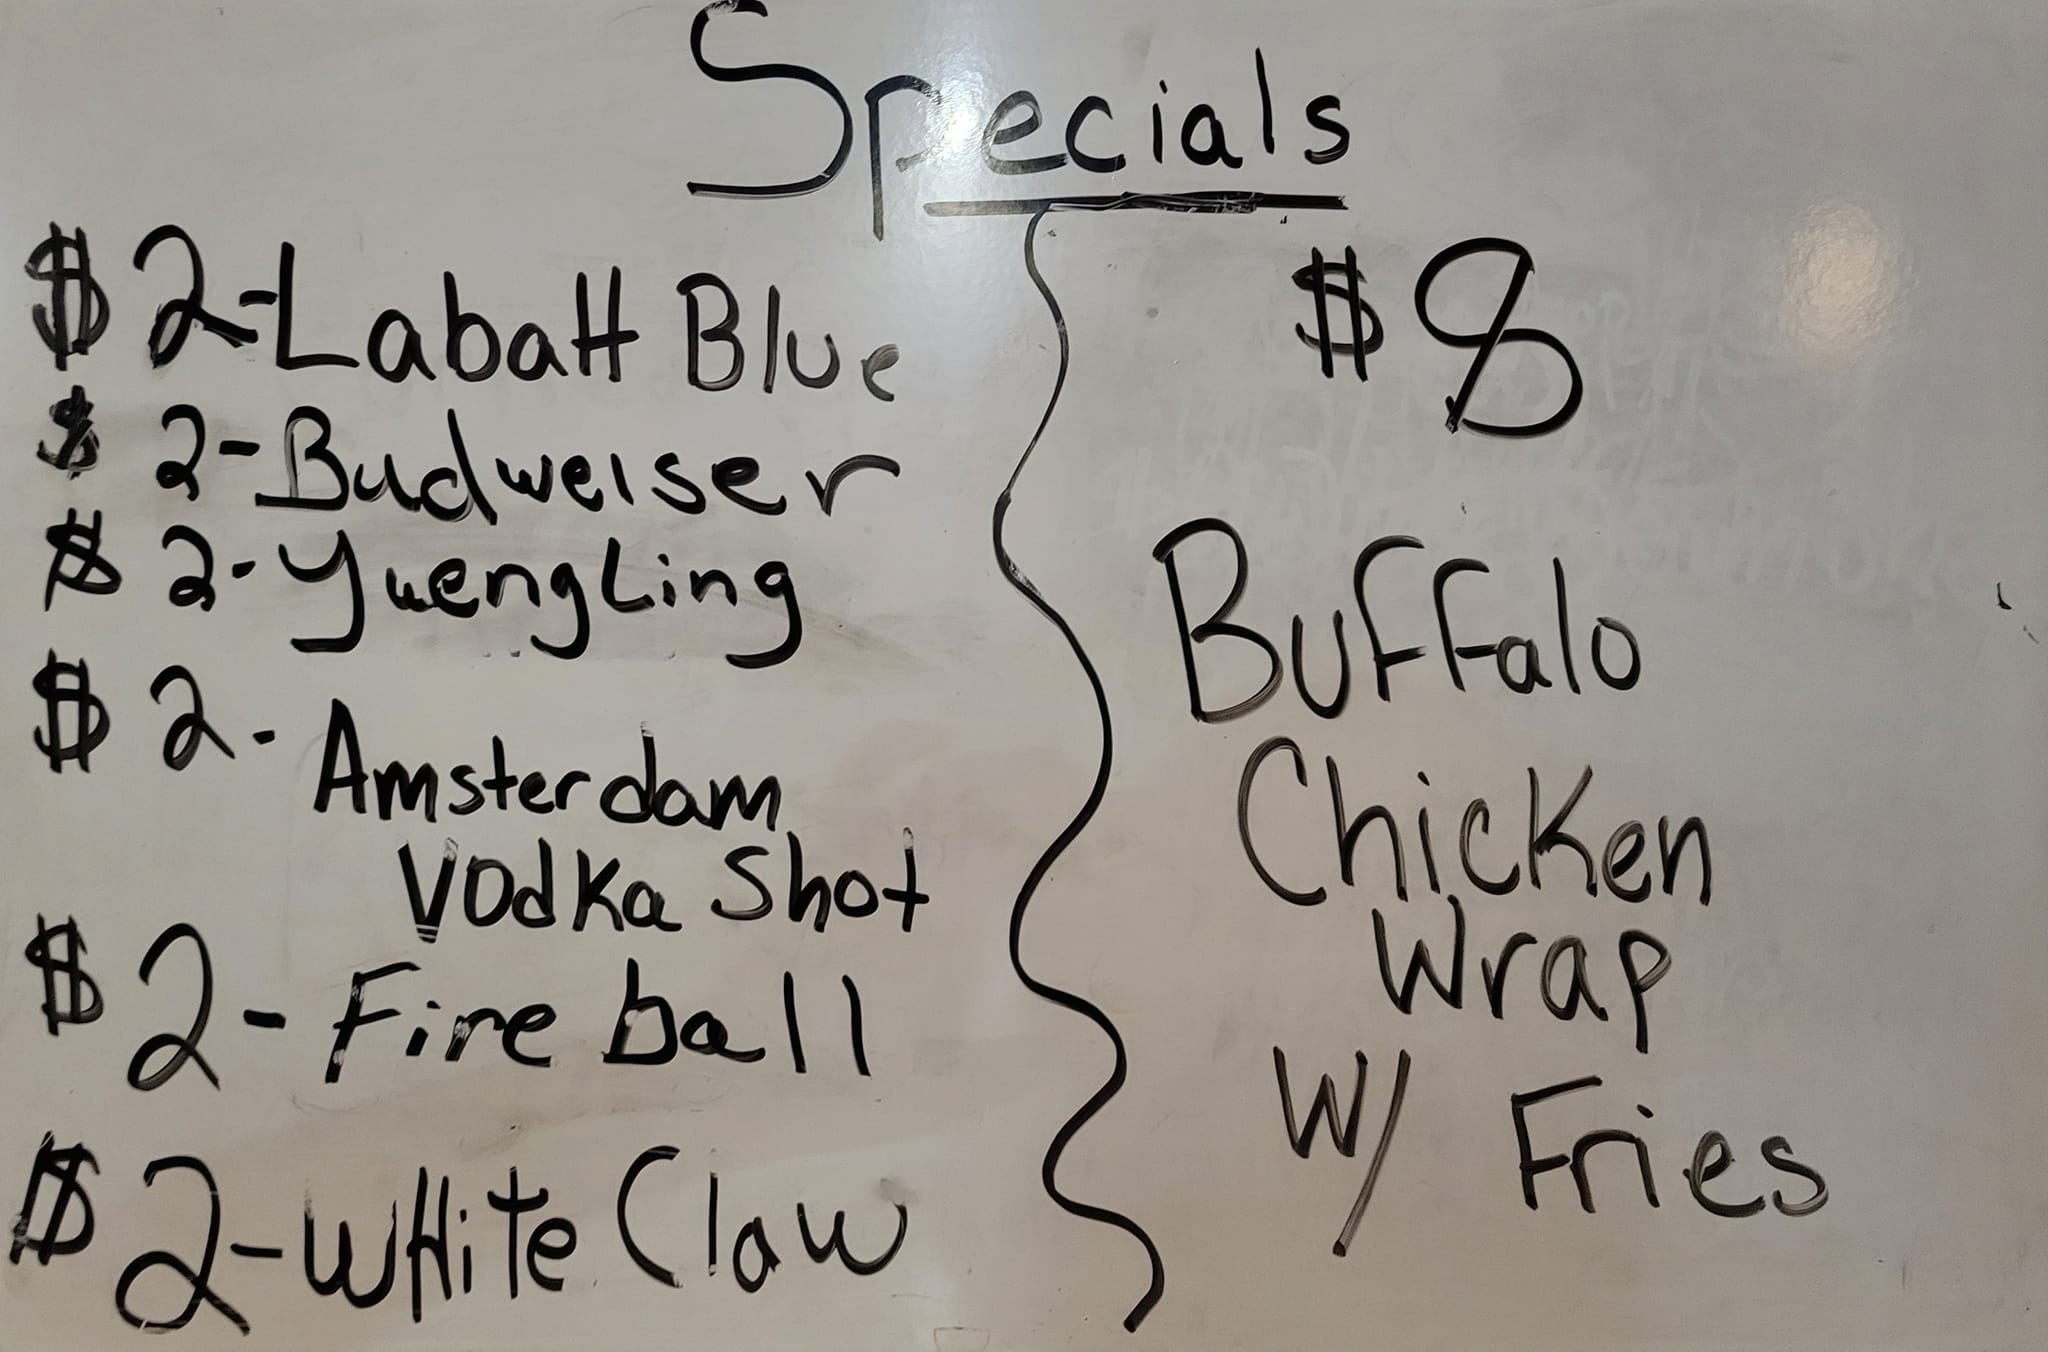 Specials
$2-Labatt Blue
$2-Budweiser
$2-Yuengling
$2-
Amsterdam
Vodka Shot
$2-Fireball
$2-WHite Claw
$8
Buffalo
Chicken
Wrap
W/ Fries